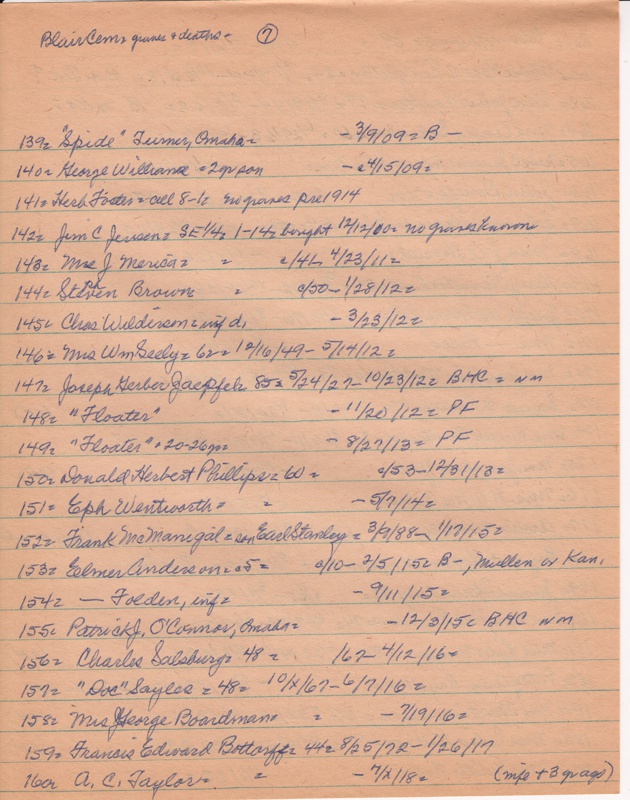 Blair Cem = graves & deaths - (7)
139= "Spide" Turner, Omaha= - 3/9/09= B -
140= George Williams =2 gr son - c4/15/09=
141= Herb Foster= cell 8-1= no graves pre 1914
142= Jim C Jensen= SE 1/4= 1-14= bought 12/12/00= no graves known
143= Mrs J Merica= = c/41- 4/23/11=
144= Steven Brown = c/50- 1/28/12=
145= Chas Wilderson= inf d, - 3/23/12=
146= Mrs Wm Seely= 62= 12/16/49- 5/14/12=
147= Joseph Gerber 85= 5/24/27- 10/23/12= BHC = nm
148= "Floater" - 11/20/12= PF
149= "Floater" = 20-26 - 8/27/13= PF
150= Donald Herbert Phillips= 60 = c/53- 12/31/13=
151= Eph Wentworth= = - 5/7/14=
152= Frank McManigal= son Earl Stanley= 3/9/88- 1/17/15=
153= Elmer Anderson= 05= c/10- 2/5/15= B-, Mullen or Kan.
154= — Folden, inf= - 9/11/15=
155= Patrick J. O'Connor, Omaha= - 12/3/15= BHC nm
156= Charles Salsburg= 48 = /67- 4/12/16=
157= "Doc" Sayles = 48= 10/x/67- 6/7/16=
158= Mrs George Boardman= = - 7/19/16=
159= Francis Edward Bottorff= 44= 8/25/72- 1/26/17
160= A. C. Taylor= = - 7/x/18= (mfe + 3 gr ago)